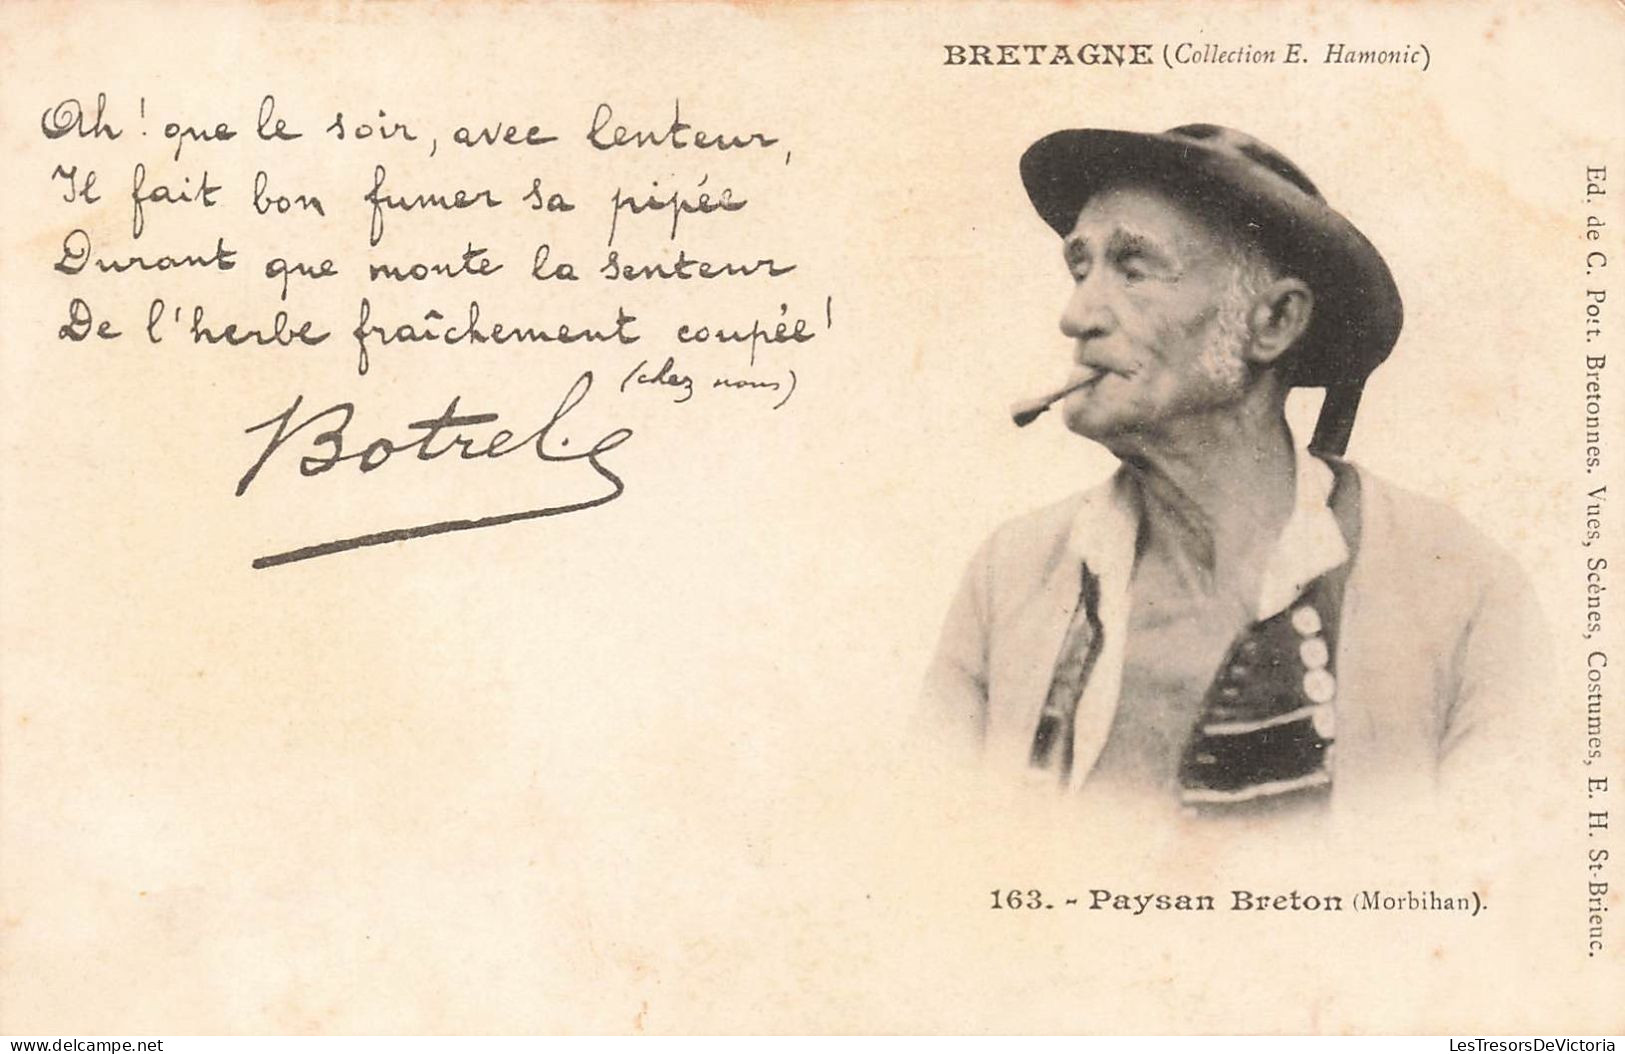 BRETAGNE (Collection E. Hamonic)
Ah ! que le soir, avec lenteur,
Il fait bon fumer sa pipée
Durant que monte la senteur
De l'herbe fraîchement coupée !
(chez nous)
Botrel
163. - Paysan Breton (Morbihan).
Ed. de C. Post. Bretonnes. Vues, Scènes, Costumes, E. H. St-Brieuc.
delcampe.net
LesTresorsDeVictoria